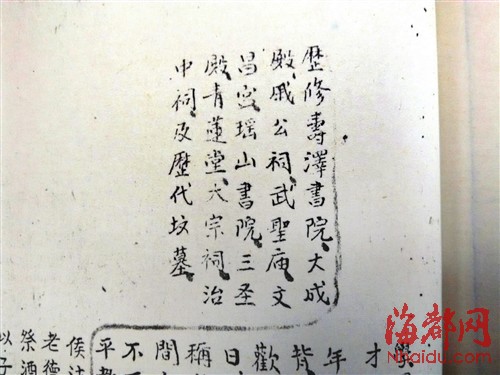 歷修壽澤書院、大成
殿、戚公祠、武聖庙、文
昌宮、瑶山書院、三圣
殿、青蓮堂、大宗祠、治
中祠、及歷代坟墓
才
年
背
歡
日
稱
間
不
平
侯
老德
祭酒
以子
海都网
Nhaidu.com